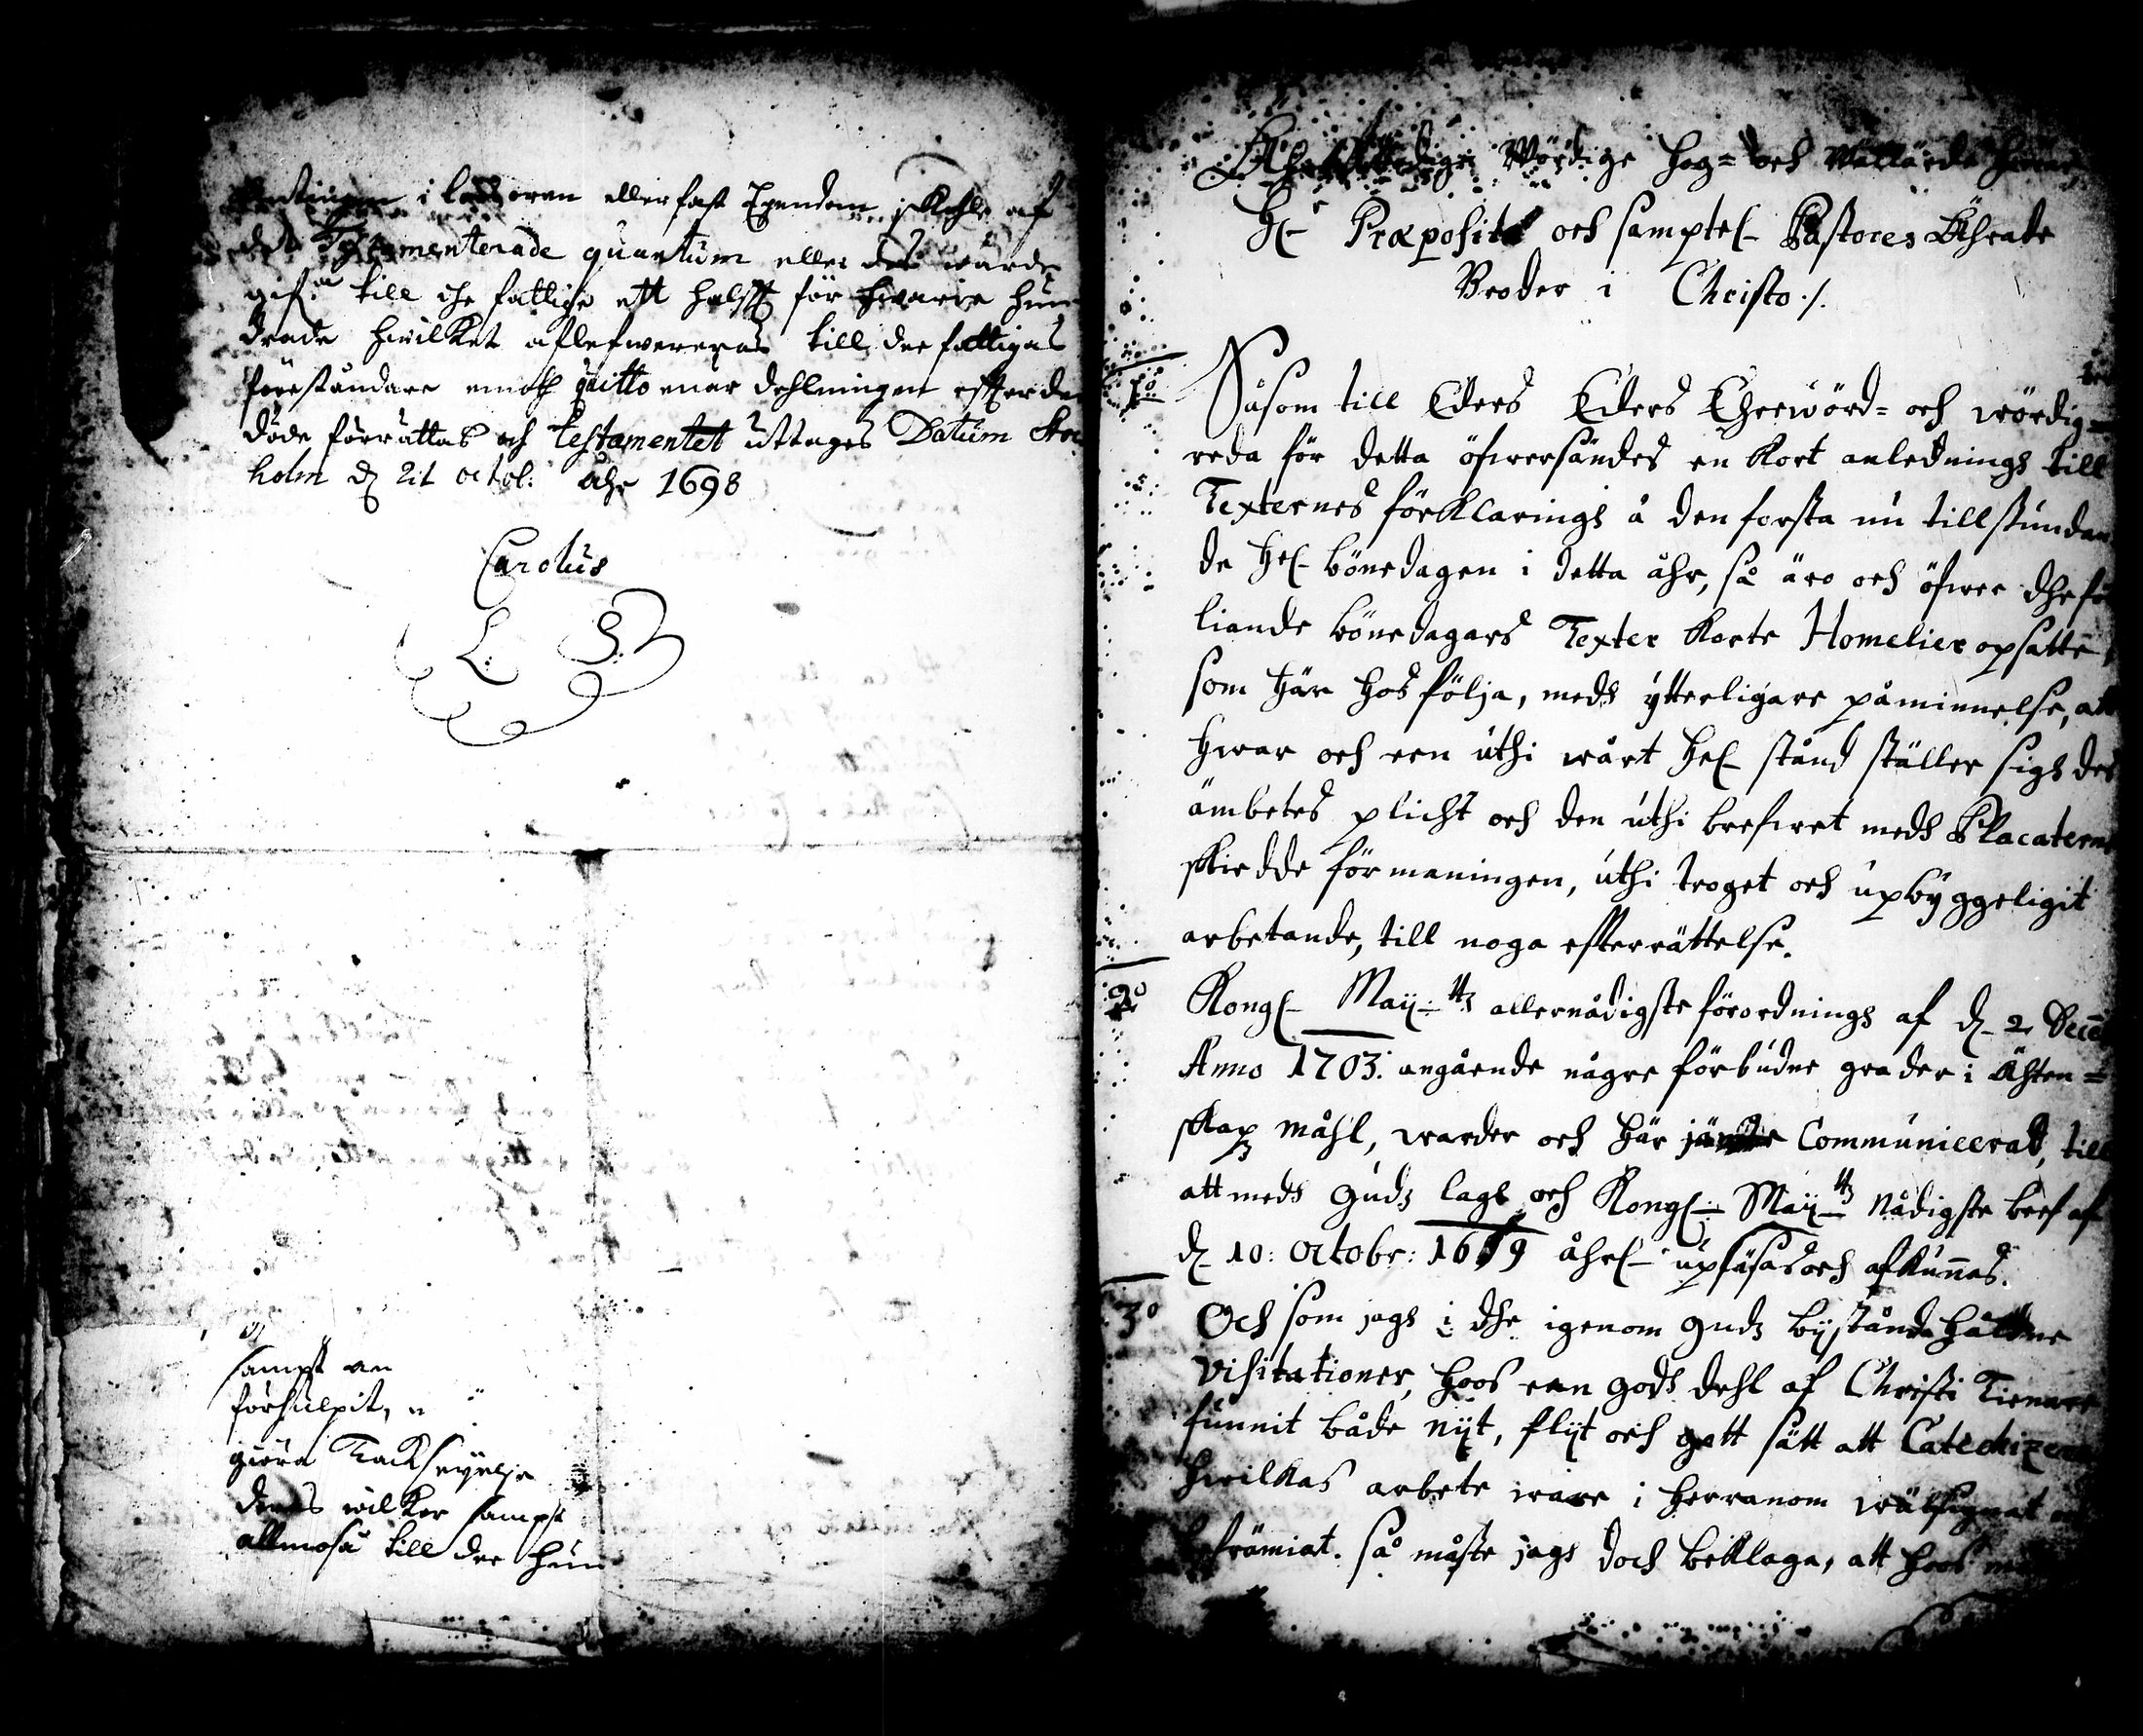 i lössören eller fast Egendom, skole af
det Testamenterade quantum eller des wärde
gifa till the fattige ett halft för hwarie hun
drade hwilket aflefwereras till dee fattigas
föreståndare emoth quitto enär dehlningen efter den
döde förrättas och Testamentet uttages Datum Stoc
holm d 21 octob: åhr 1698
Carolus
L. S.
sampt en
förhulpit,
giöra Tackseijelse
deras wilkor sampt
allmosa till dee hun
Wördige Hög= och Wällärde Herrar
H Præposite och samptel Pastores Ährade
Broder i Christo ./.
1o Såsom till Eders Eders Ehrewörd= och wördig=
reda för detta öfwersändes en Kort anlednings till
Texternes förklarings å den forsta nu tillstundan
de Hel bönedagen i detta åhr, så äro och öfwer dhe föl
liande bönedagars Texter Korte Homelier opsatte,
som här hos följa, meds ytterligare påminnelse, att
hwar och een uthi wårt Hel stånd ställer sigs des
ämbetes plicht och den uthi brefwet meds Placaterne
skiedde förmaningen, uthi troget och upbyggeligit
arbetande, till noga efterrättelse.
2o Kongl Maij:ttz allernådigste förordnings af d 2 Decem
Anno 1703. angående någre förbudne grader i Ächten=
skapz måhl, warder och här jämte Communicerat, till
att meds Gudz lags och Kongl Maij:ttz Nådigste bref af
d 10: Octobr: 1679 åhrl upläsas och afkunnas.
3o Och som jags i dhe igenom Gudz bijstånd håldne
Visitationer, hoos een gods dehl af Christi Tienare
funnit både nijt, flijt och gott sätt att Catechizera
hwilkas arbete ware i Herranom wälsignat
befrämiat. så måste jags doch beklaga, att hoos